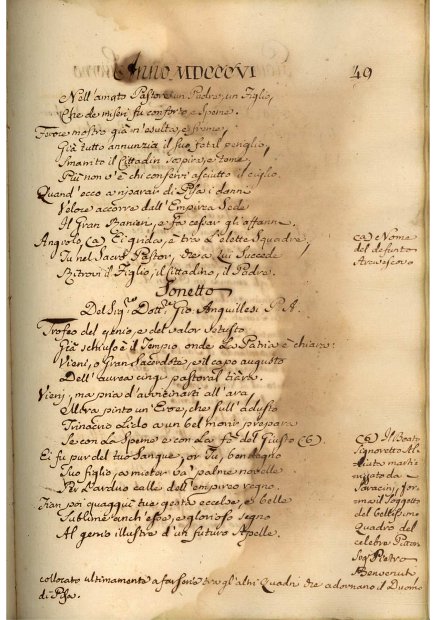 Anno MDCCCVI
49
Nell'amato Pastore un Padre, un Figlio,
Che de miseri fu conforto e Speme.
Feroce mostro già n'esulta, e freme,
Già tutto annunzia il suo fatal periglio,
Smarrito il Cittadin sospira, e teme,
Più non v'è chi conservi asciutto il ciglio.
Quand'ecco a riparar di Pisa i danni
Veloce accorre dall'Empirea Sede
Il Gran Ranieri, e fa cessar gl'affanni.
Angiolo (a) Ei grida, è tra l'elette Squadre,
Tu nel Sacro Pastor, che a Lui Succede
Ritrovi il Figlio, il Cittadino, il Padre.
(a) Nome
del defunto
Arcivescovo
Sonetto
Del Sig.re Dott.re Gio. Anguillesi P. A.
Trofeo del genio, e del valor vetusto
Già schiuso è il Tempio onde La Patria è chiara:
Vieni, o Gran Sacerdote, e il capo augusto
Dell'aurea cingi pastoral tiara.
Vieni, ma pria d'avvicinarti all'ara
Mira pinto un'Eroe, che sull'adusto
Trinacrio Lido a un bel morir prepara
Se con La Speme e con La fè del Giusto (b).
Ei fu pur del tuo Sangue, or Tu, ben degno
Suo figlio, a mietar va' palme novelle
Per l'arduo calle dell'empireo regno.
Fian poi quaggiù tue gesta eccelse, e belle
Sublime anch'esse, e glorioso segno
Al genio illustre d'un futuro Apelle.
(b) Il Beato
Signoretto Al-
liata marti-
rizzato da
Saracini, for-
ma il Soggetto
del bellissimo
Quadro del
celebre Pittor
Sig. Pietro
Benvenuti
collocato ultimamente a far serie tra gl'altri Quadri che adornano il Duomo
di Pisa.